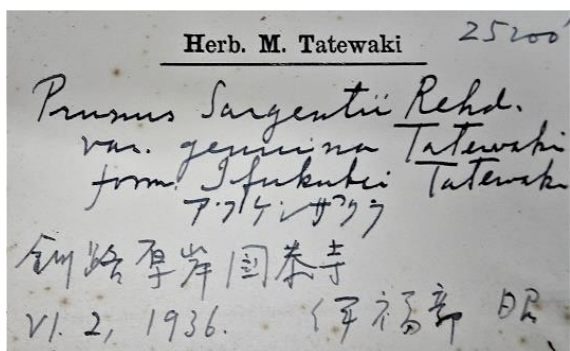 Herb. M. Tatewaki
25200
Prunus Sargentii Rehd.
var. genuina Tatewaki
form. Ifukubei Tatewaki
アッケシザクラ
釧路厚岸国泰寺
VI. 2, 1936. 伊福部 昭